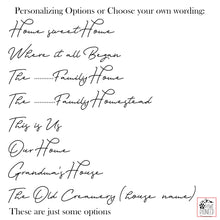 Personalizing Options or Choose your own wording:
Home sweet Home
Where it all Began
The ............Family Home
The ............Family Homestead
This is Us
Our Home
Grandma's House
The Old Creamery (house name)
These are just some options